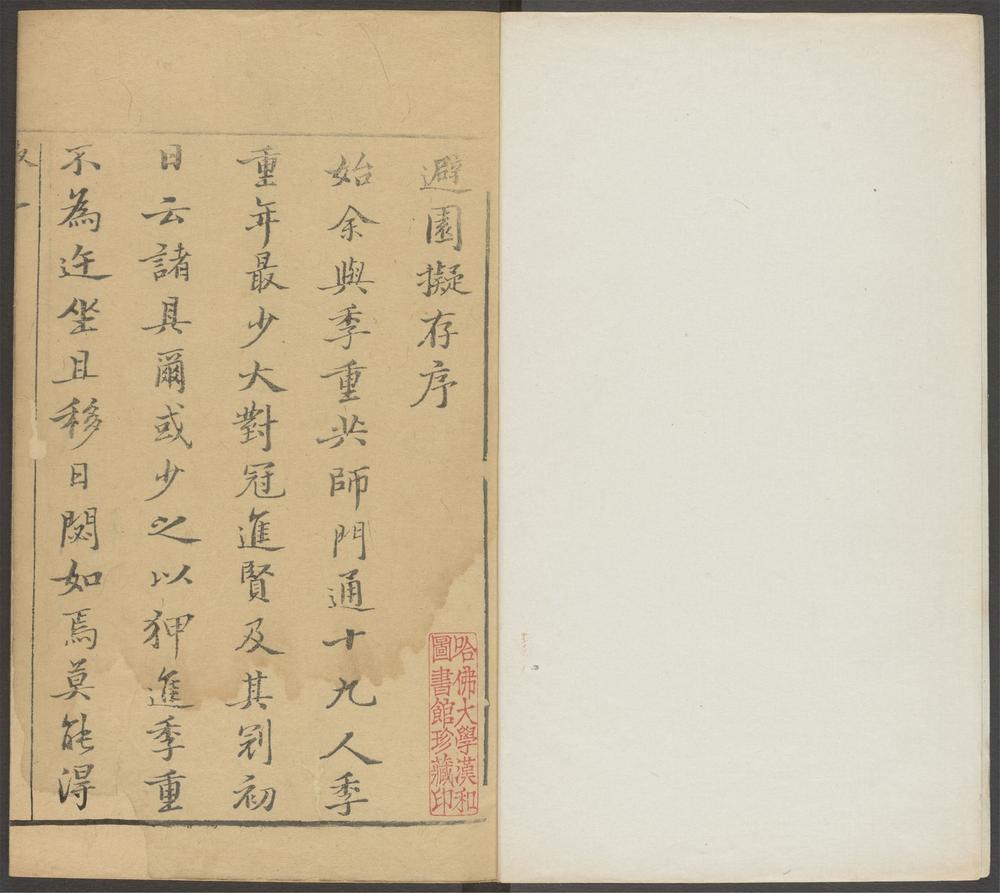 避園擬存序
始余與季重共師門通十九人季
重年最少大對冠進賢及其剖初
日云諸具爾或少之以狎進季重
不為迕坐且移日閟如焉莫能得
哈佛大學漢和
圖書館珍藏印